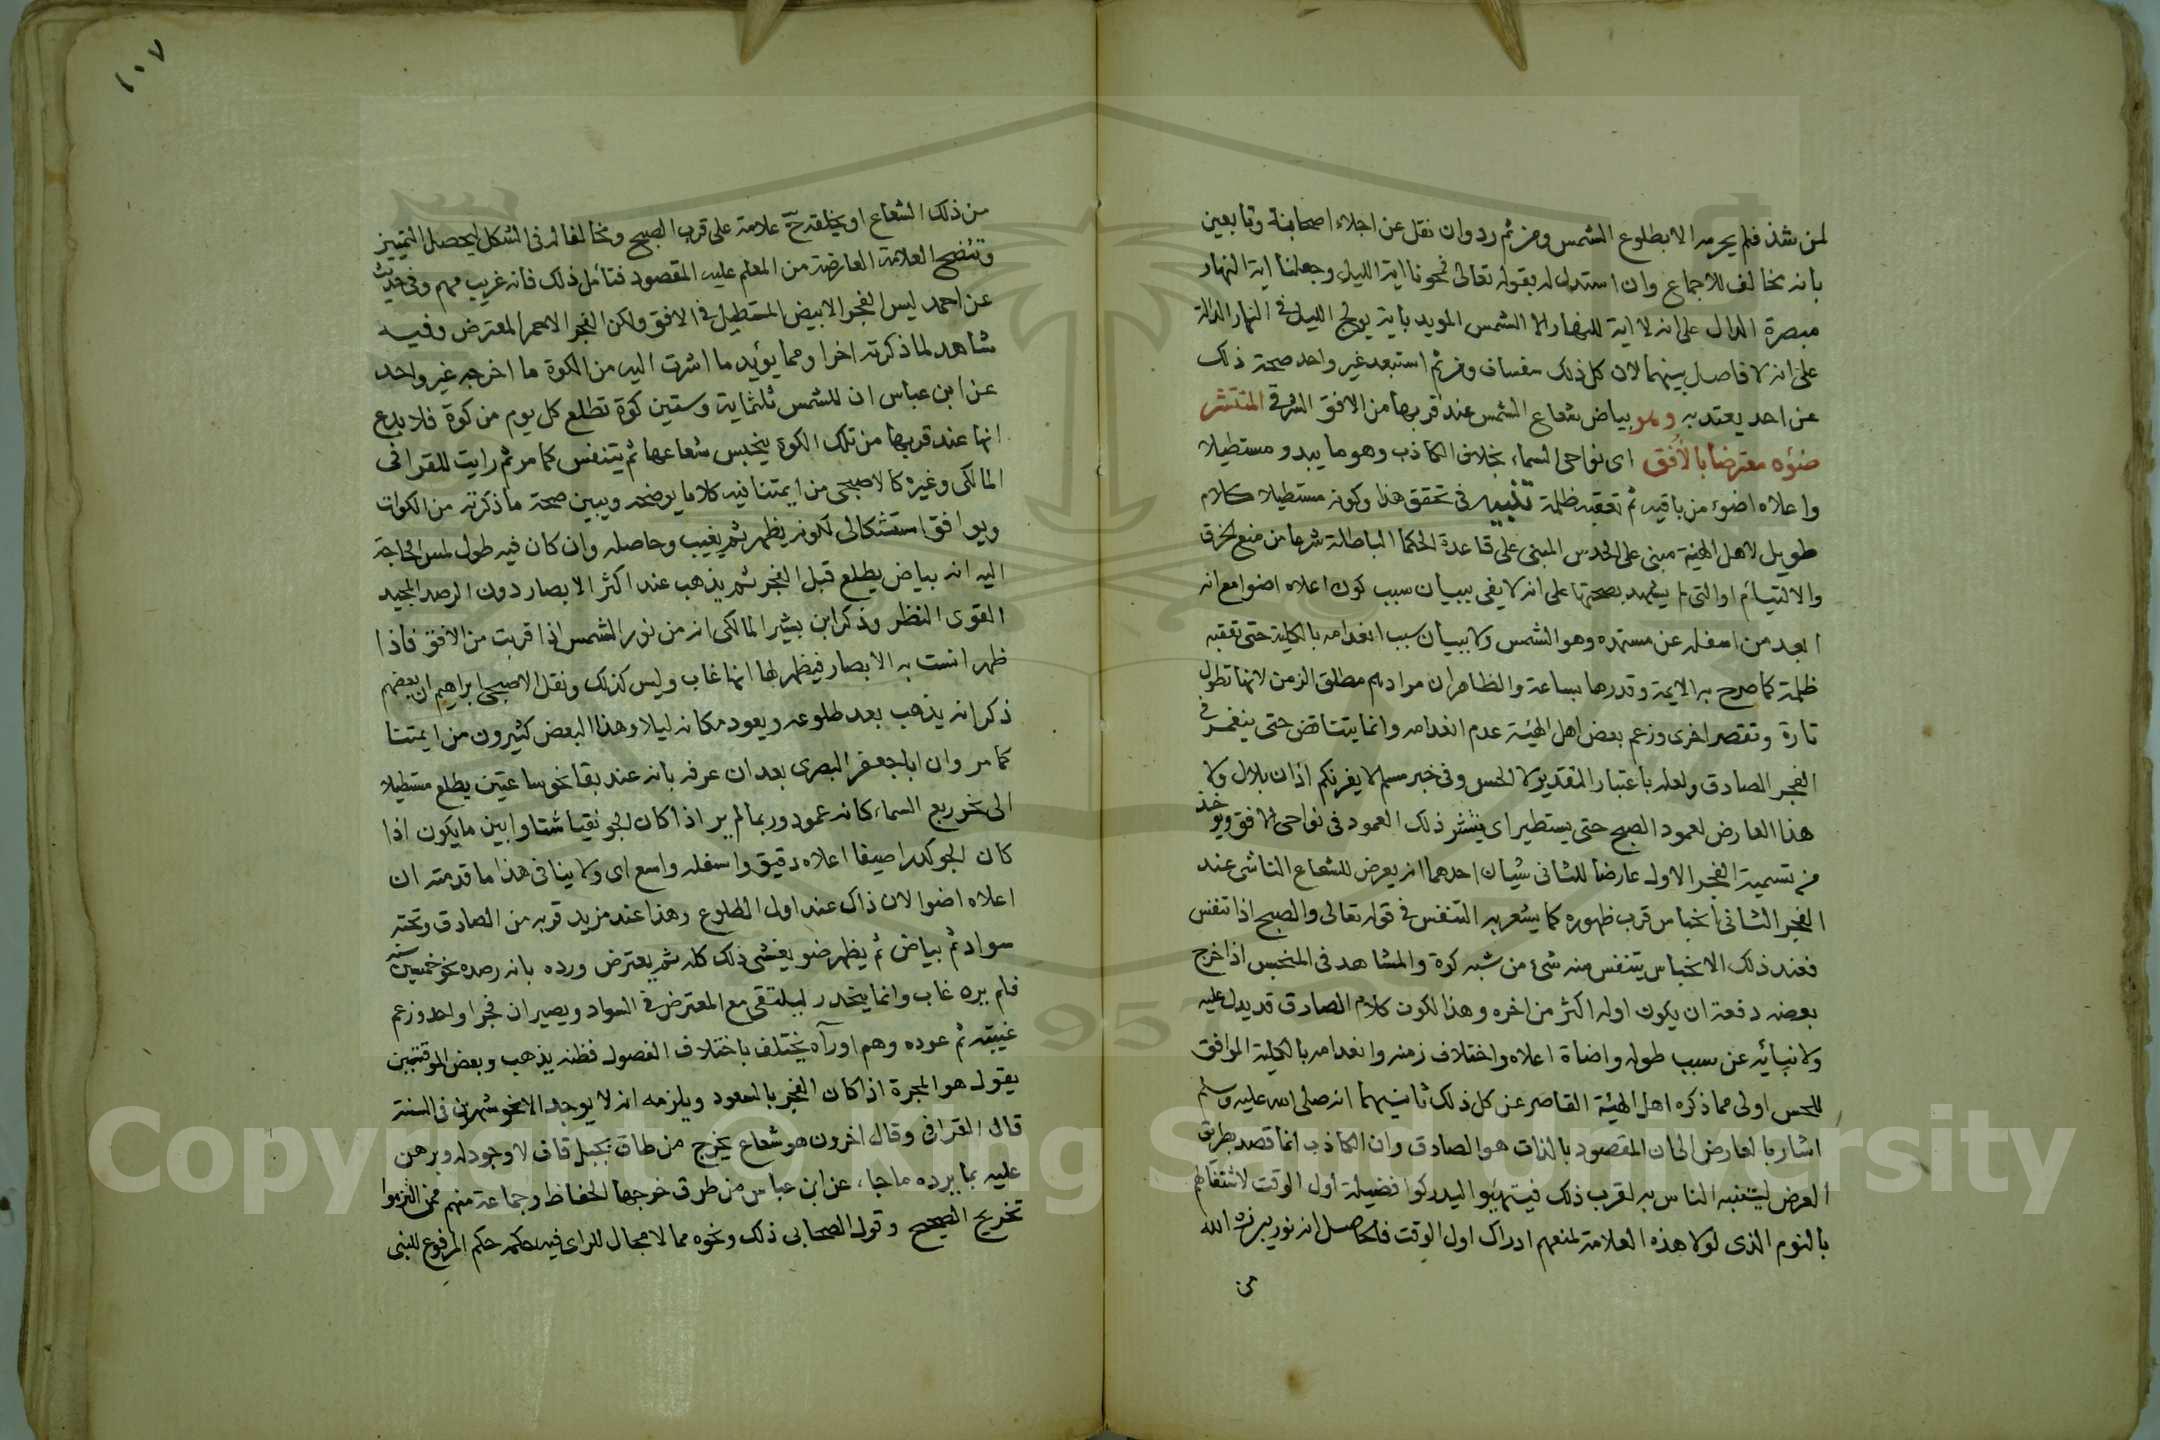 لمن شذ فلم يحرمه الا بطلوع الشمس ومن ثم رد وان نقل عن اجلاء اصحابنة وتابعين
بانه مخالف للاجماع وان استدل له بقوله تعالى فمحونا اية الليل وجعلنا اية النهار
مبصرة الدال على انه لا اية للنهار الا الشمس المويد باية يولج الليل في النهار الدالة
على انه لا فاصل بينهما لان كل ذلك سفساف ومن ثم استبعد غير واحد صحة ذلك
عن احد يعتد به وهو بياض شعاع الشمس عند قربها من الافق الشرقي المنتشر
ضوؤه معترضا بالأفق اى نواحى السماء بخلاف الكاذب وهو ما يبدو مستطيلا
واعلاه اضوء من باقيه ثم تعقبه ظلمة تنبيه في تحقق هذا وكونه مستطيلا كلام
طويل لاهل الهيئة مبنى على الحدس المبنى على قاعدة الحكما الباطلة شرعا من منع الخرق
والالتيام او التى لم يشهد بصحتها على انه لا يفى ببيان سبب كون اعلاه اضوا مع انه
ابعد من اسفله عن مستمده وهو الشمس ولا ببيان سبب انعدامه بالكلية حتى تعقبه
ظلمة كما صرح به الايمة وقدروها بساعة والظاهر ان مرادهم مطلق الزمن لانها تطول
تارة وتقصر اخرى وزعم بعض اهل الهيئة عدم انعدامه وانما يتناقص حتى ينغمر في
الفجر الصادق ولعله باعتبار التقدير لا الحس وفى خبر مسلم لا يغرنكم اذان بلال ولا
هذا العارض لعمود الصبح حتى يستطير اى ينتشر ذلك العمود فى نواحى الافق ويوخذ
من تسمية الفجر الاول عارضا للثانى شيان احدهما انه يعرض للشعاع الناشى عند
الفجر الثانى انحباس قرب ظهوره كما يشعر به التنفس في قوله تعالى والصبح اذا تنفس
فعند ذلك الانحباس يتنفس منه شئ من شبه كوة والمشاهد فى المنحبس اذا خرج
بعضه دفعة ان يكون اوله اكثر من اخره وهذا لكون كلام الصادق قد يدل عليه
ولانبائه عن سبب طوله واضاة اعلاه واختلاف زمنه وانعدامه بالكلية الموافق
للحس اولى مما ذكره اهل الهيئة القاصر عن كل ذلك ثانيهما انه صلى الله عليه وسلم
اشار بالعارض الى ان المقصود بالذات هو الصادق وان الكاذب انما قصد بطريق
العرض ليتنبه الناس به لقرب ذلك فيتهيئوا ليدركوا فضيلة اول الوقت لاشتغالهم
بالنوم الذى لولا هذه العلامة لمنعهم ادراك اول الوقت فالحاصل انه نور يبرزه الله
من
١٠٧
من ذلك الشعاع او يخلقه ح علامة على قرب الصبح ومخالفا له فى الشكل ليحصل التمييز
وتتضح العلامة العارضة من المعلم عليه المقصود فتأمل ذلك فانه غريب مهم وفى حديث
عن احمد ليس الفجر الابيض المستطيل في الافق ولكن الفجر الاحمر المعترض وفيه
شاهد لما ذكرته اخرا ومما يؤيد ما اشرت اليه من الكوة ما اخرجه غير واحد
عن ابن عباس ان للشمس ثلثماية وستين كوة تطلع كل يوم من كوة فلا بدع
انها عند قربها من تلك الكوة ينحبس شعاعها ثم يتنفس كما مر ثم رايت للقرافى
المالكى وغيره كالاصبحى من ايمتنا فيه كلاما يوضحه ويبين صحة ما ذكرته من الكوات
ويوافق استشكالى لكونه يظهر ثم يغيب وحاصله وان كان فيه طول لمس الحاجة
اليه انه بياض يطلع قبل الفجر ثم يذهب عند اكثر الابصار دون الرصد المجيد
القوى النظر وذكر ابن بشير المالكى انه من نور الشمس اذا قربت من الافق فاذا
ظهر انست به الابصار فيظهر لها انها غاب وليس كذلك ونقل الاصبحى ابراهيم ان بعضهم
ذكر انه يذهب بعد طلوعه ويعود مكانه ليلا وهذا البعض كثيرون من ايمتنا
كما مر وان ابا جعفر البصرى بعد ان عرفه بانه عند بقا نحو ساعتين يطلع مستطيلا
الى نحو ربع السماء كانه عمود وربما لم ير اذا كان الجو نقيا شتا وابين ما يكون اذا
كان الجو كدرا صيفا اعلاه دقيق واسفله واسع اى ولا ينافى هذا ما قدمته ان
اعلاه اضوا لان ذاك عند اول الطلوع وهذا عند مزيد قربه من الصادق وتحته
سواد ثم بياض ثم يظهر ضو يغشى ذلك كله ثم يعترض ورده بانه رصده نحو خمسين سنة
فلم يره غاب وانما ينحدر ليلتقى مع المعترض في السواد ويصيران فجرا واحدا وزعم
غيبته ثم عوده وهم او رآه يختلف باختلاف الفصول فظنه يذهب وبعض الموقتين
يقول هو المجرة اذا كان الفجر بالسعود ويلزمه انه لا يوجد الا نحو شهرين فى السنة
قال القرافى وقال اخرون هو شعاع يخرج من طاق بجبل قاف لا وجود له وبرهن
عليه بما يرده ما جاء عن ابن عباس من طرق خرجها الحفاظ وجماعة منهم ممن التزموا
تخريج الصحيح وقول الصحابى ذلك ونحوه مما لا مجال للراى فيه حكمه حكم المرفوع للنبى
Copyright © King Saud University
1957